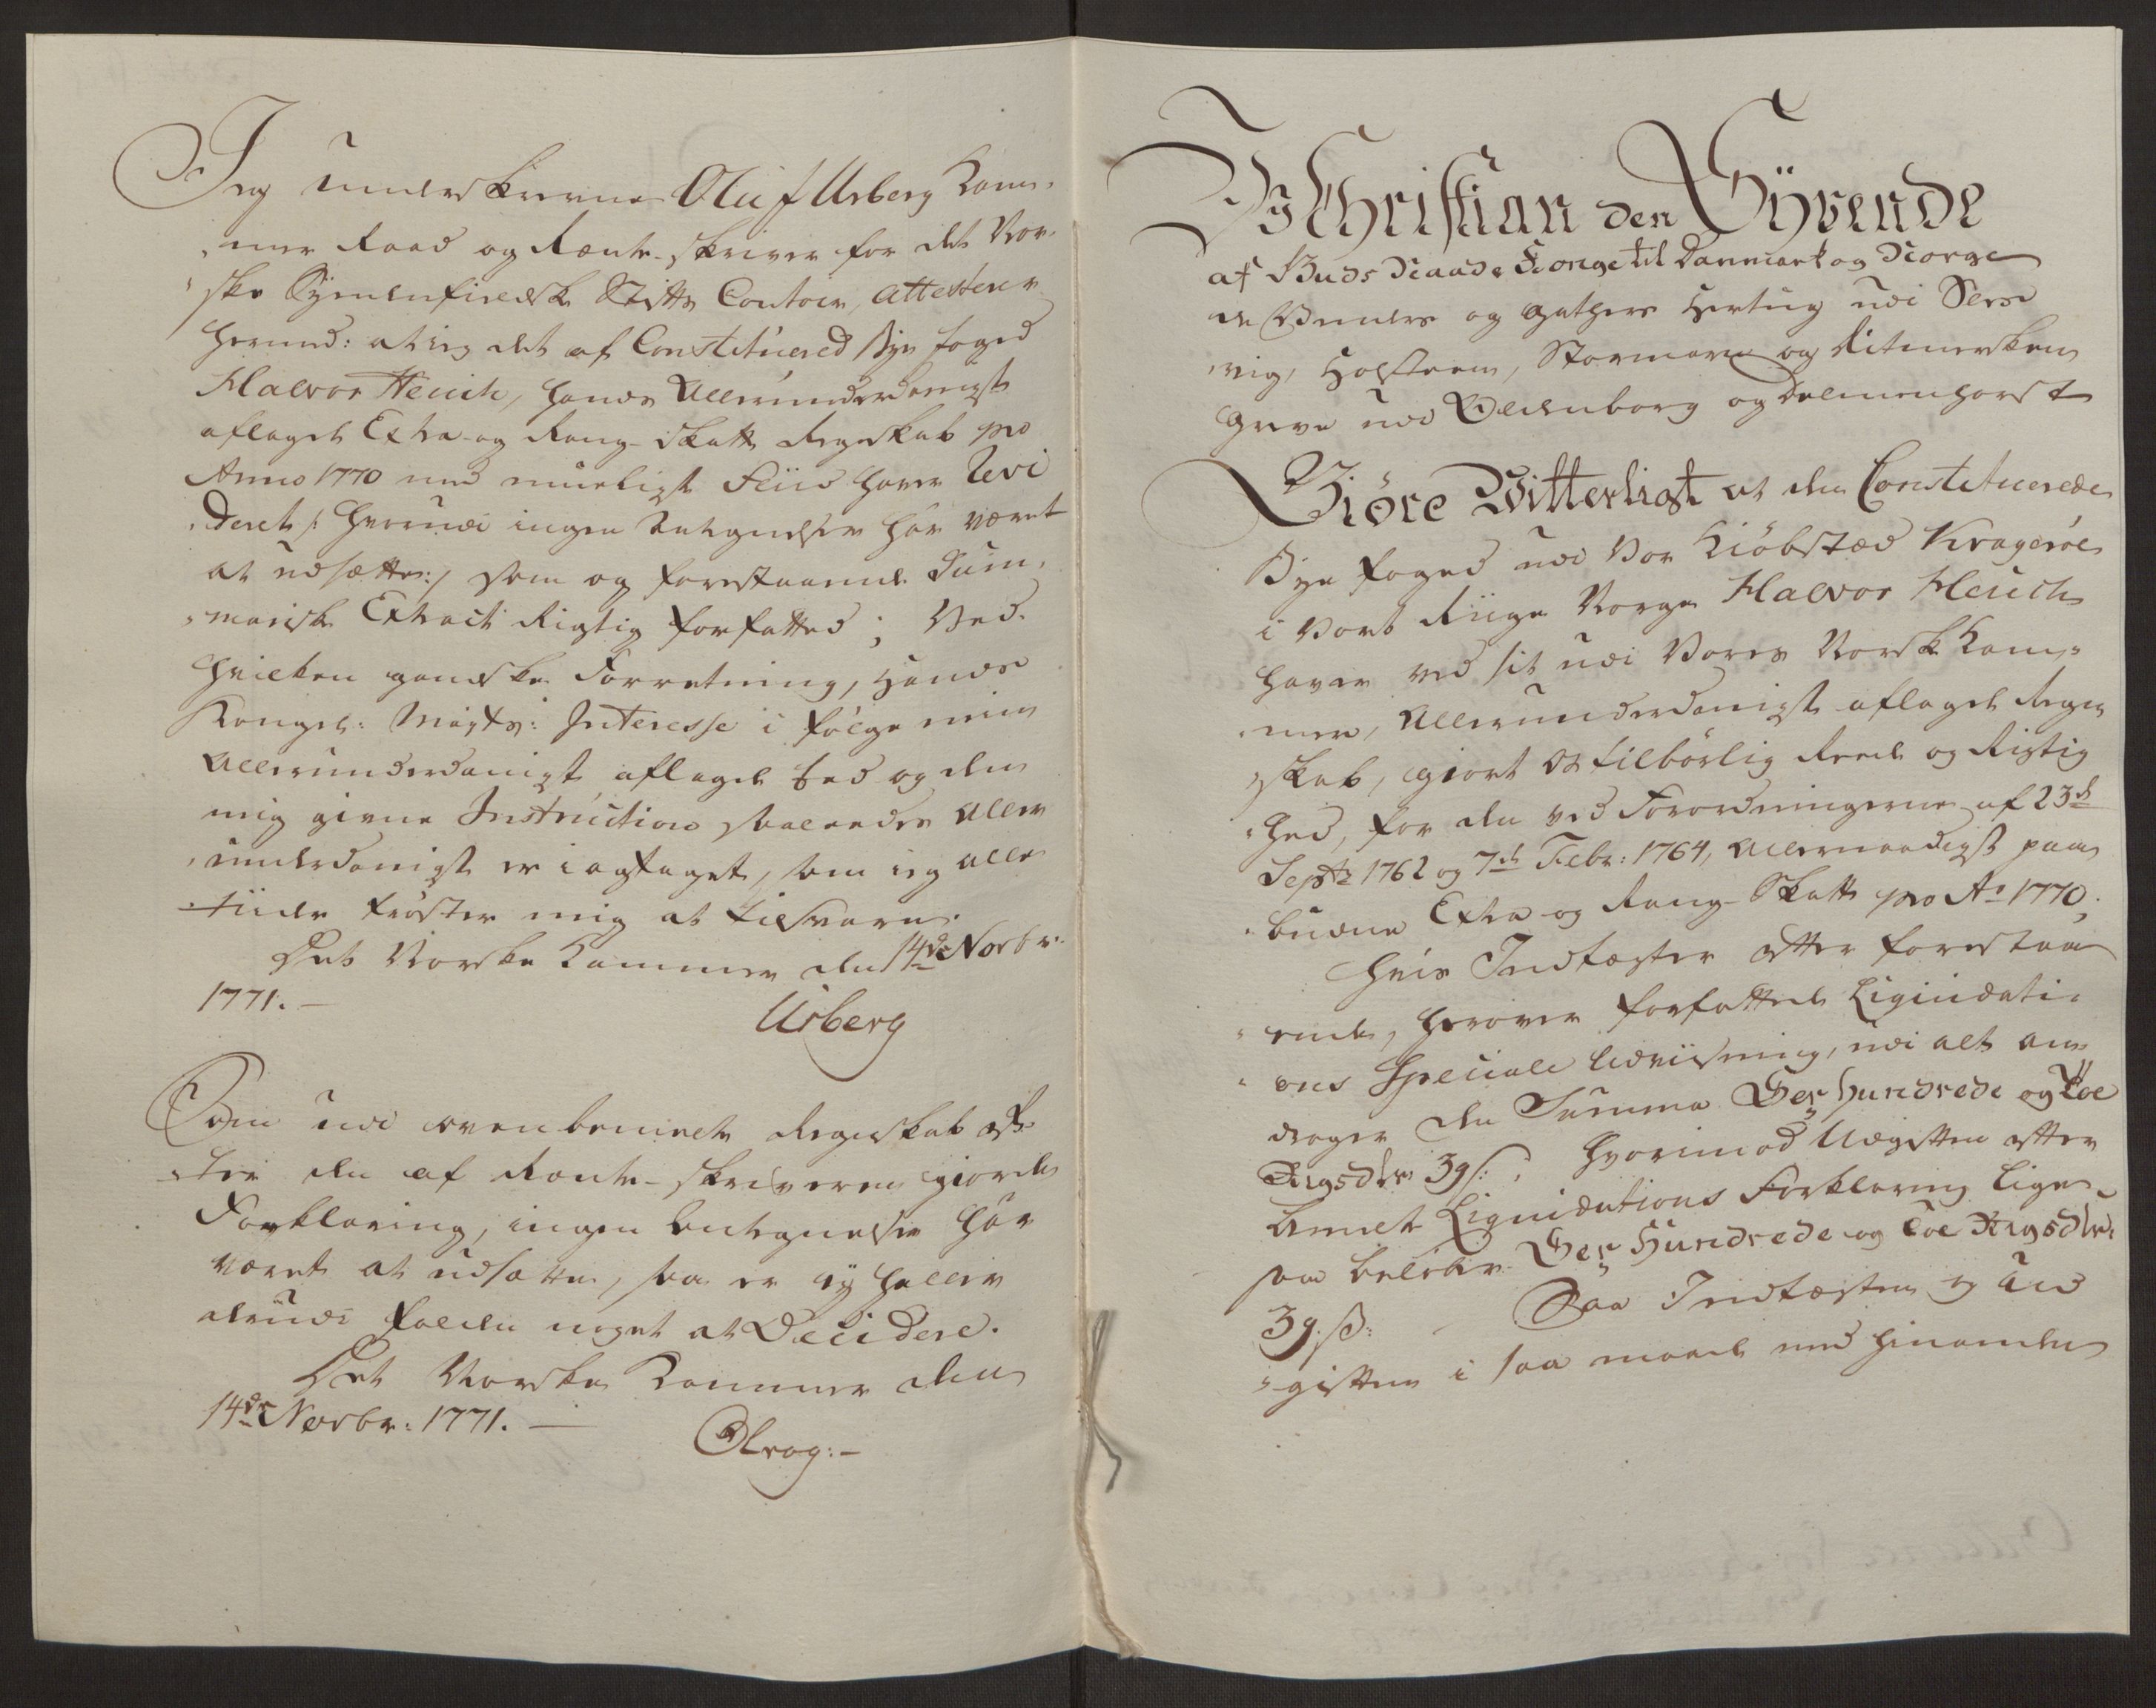 Jeg underskrevne Oluf Urberg Kam¬
„mer Raad og Rente-skriver for det Nor¬
„ske Synденfieldske Stifts Contoir, attesterer
hermed: at ieg det af Constitueret Bye foged
Halvor Heuch, hands Allerunderdanigst
aflagde Extra- og Rang-skatt Regnskab pro
Anno 1770 med mueligst Fliid haver Revi
„deret /: hvorudi ingen Antegnelser har været
at udsætte :/ som og forestaaende Sum¬
„mariske Extract Rigtig forfatted; Ved
hvilken gandske Forretning, Hands
Kongel: Mayts: Interesse i følge min
Allerunderdanigst aflagde Eed og den
mig givne Instruction saaledes Aller
„underdanigst er iagttaget, som ieg alle
tiider trøster mig at tilsvare.
Det Norske Kammer den 14de Novbr.
1771. —
Urberg
Som udi ovenbemelte Regnskab ef¬
„ter den af Rente-skriveren giorde
Forklaring, ingen Antegnelse har
været at udsætte, saa er ey heller
derudi falden noget at Decidere.
Det Norske Kammer den
14de Novbr: 1771. —
Olrog: —
Wy Christian den Syvende
af Guds Naade Konge til Danmark og Norge
de Venders og Gothers Hertug udi Sles
„vig, Holsteen, Stormarn og Ditmersken
Greve udi Oldenborg og Delmenhorst
Giöre Witterligt at den Constituerede
Bye foged udi Vor Kiöbstæd Kragerøe
i Vort Riige Norge Halvor Heuch
haver ved sit udi Vores Norske Kam¬
„mer, Allerunderdanigst aflagde Regn
„skab, giort os tilbörlig Reede og Rigtig
„hed, for den ved Forordningerne af 23de
Septr 1762 og 7de Febr: 1764, Allernaadigst paa
„budne Extra- og Rang-Skatt pro Ao 1770;
Hvis Indtægter efter forestaa
„ende, herover forfattede Liqvidati¬
„ons Speciale Udviisning, udi alt an
drager den Summa Sex Hundrede og Toe
Rigsdlr: 39 s: ; hvorimod Udgiften efter
bemelte Liqvidations Forklaring lige
saa beløber Sex Hundrede og Toe Rigsdlr:
39. s: Saa Indtægten og Ud
„giften i saa maade med hinanden